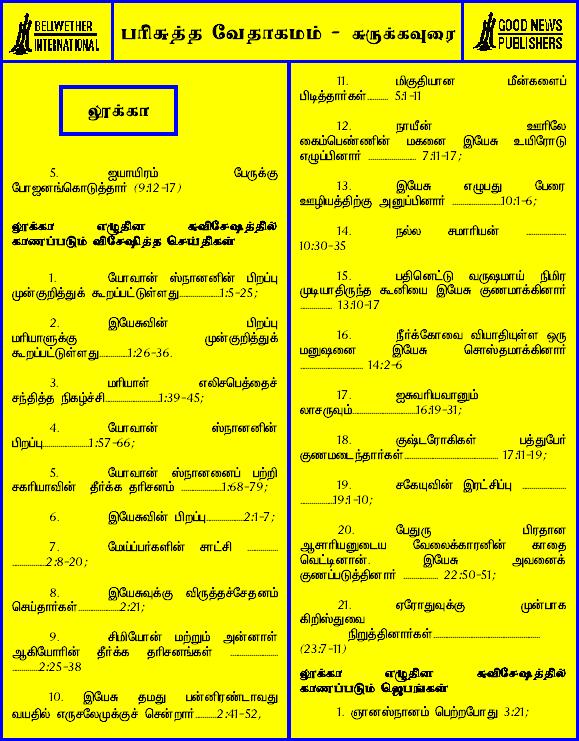 BELLWETHER
INTERNATIONAL
பரிசுத்த வேதாகமம் - சுருக்கவுரை
GOOD NEWS
PUBLISHERS
லூக்கா
5. ஐயாயிரம் பேருக்கு
போஜனங்கொடுத்தார் (9:12-17)
லூக்கா எழுதின சுவிசேஷத்தில்
காணப்படும் விசேஷித்த செய்திகள்
1. யோவான் ஸ்நானனின் பிறப்பு
முன்குறித்துக் கூறப்பட்டுள்ளது..................1:5-25;
2. இயேசுவின் பிறப்பு
மரியாளுக்கு முன்குறித்துக்
கூறப்பட்டுள்ளது.............1:26-36.
3. மரியாள் எலிசபெத்தைச்
சந்தித்த நிகழ்ச்சி........................1:39-45;
4. யோவான் ஸ்நானனின்
பிறப்பு.....................1:57-66;
5. யோவான் ஸ்நானனைப் பற்றி
சகரியாவின் தீர்க்க தரிசனம் ..................1:68-79;
6. இயேசுவின் பிறப்பு.................2:1-7;
7. மேய்ப்பர்களின் சாட்சி ..............
...............2:8-20;
8. இயேசுவுக்கு விருத்தச்சேதனம்
செய்தார்கள்...................2:21;
9. சிமியோன் மற்றும் அன்னாள்
ஆகியோரின் தீர்க்க தரிசனங்கள் .....................
............2:25-38
10. இயேசு தமது பன்னிரண்டாவது
வயதில் எருசலேமுக்குச் சென்றார்..........2:41-52,
11. மிகுதியான மீன்களைப்
பிடித்தார்கள்.......... 5:1-11
12. நாயீன் ஊரிலே
கைம்பெண்ணின் மகனை இயேசு உயிரோடு
எழுப்பினார் ...................... 7:11-17;
13. இயேசு எழுபது பேரை
ஊழியத்திற்கு அனுப்பினார் ......................10:1-6;
14. நல்ல சமாரியன் ..................
10:30-35
15. பதினெட்டு வருஷமாய் நிமிர
முடியாதிருந்த கூனியை இயேசு குணமாக்கினார்
............... 13:10-17
16. நீர்க்கோவை வியாதியுள்ள ஒரு
மனுஷனை இயேசு சொஸ்தமாக்கினார்
............................ 14:2-6
17. ஐசுவரியவானும்
லாசருவும்............................16:19-31;
18. குஷ்டரோகிகள் பத்துபேர்
குணமடைந்தார்கள்......................................... 17:11-19;
19. சகேயுவின் இரட்சிப்பு ...................
...............19:1-10;
20. பேதுரு பிரதான
ஆசாரியனுடைய வேலைக்காரனின் காதை
வெட்டினான். இயேசு அவனைக்
குணப்படுத்தினார் ................ 22:50-51;
21. ஏரோதுவுக்கு முன்பாக
கிறிஸ்துவை
நிறுத்தினார்கள்...............................................
(23:7-11)
லூக்கா எழுதின சுவிசேஷத்தில்
காணப்படும் ஜெபங்கள்
1. ஞானஸ்நானம் பெற்றபோது 3:21;